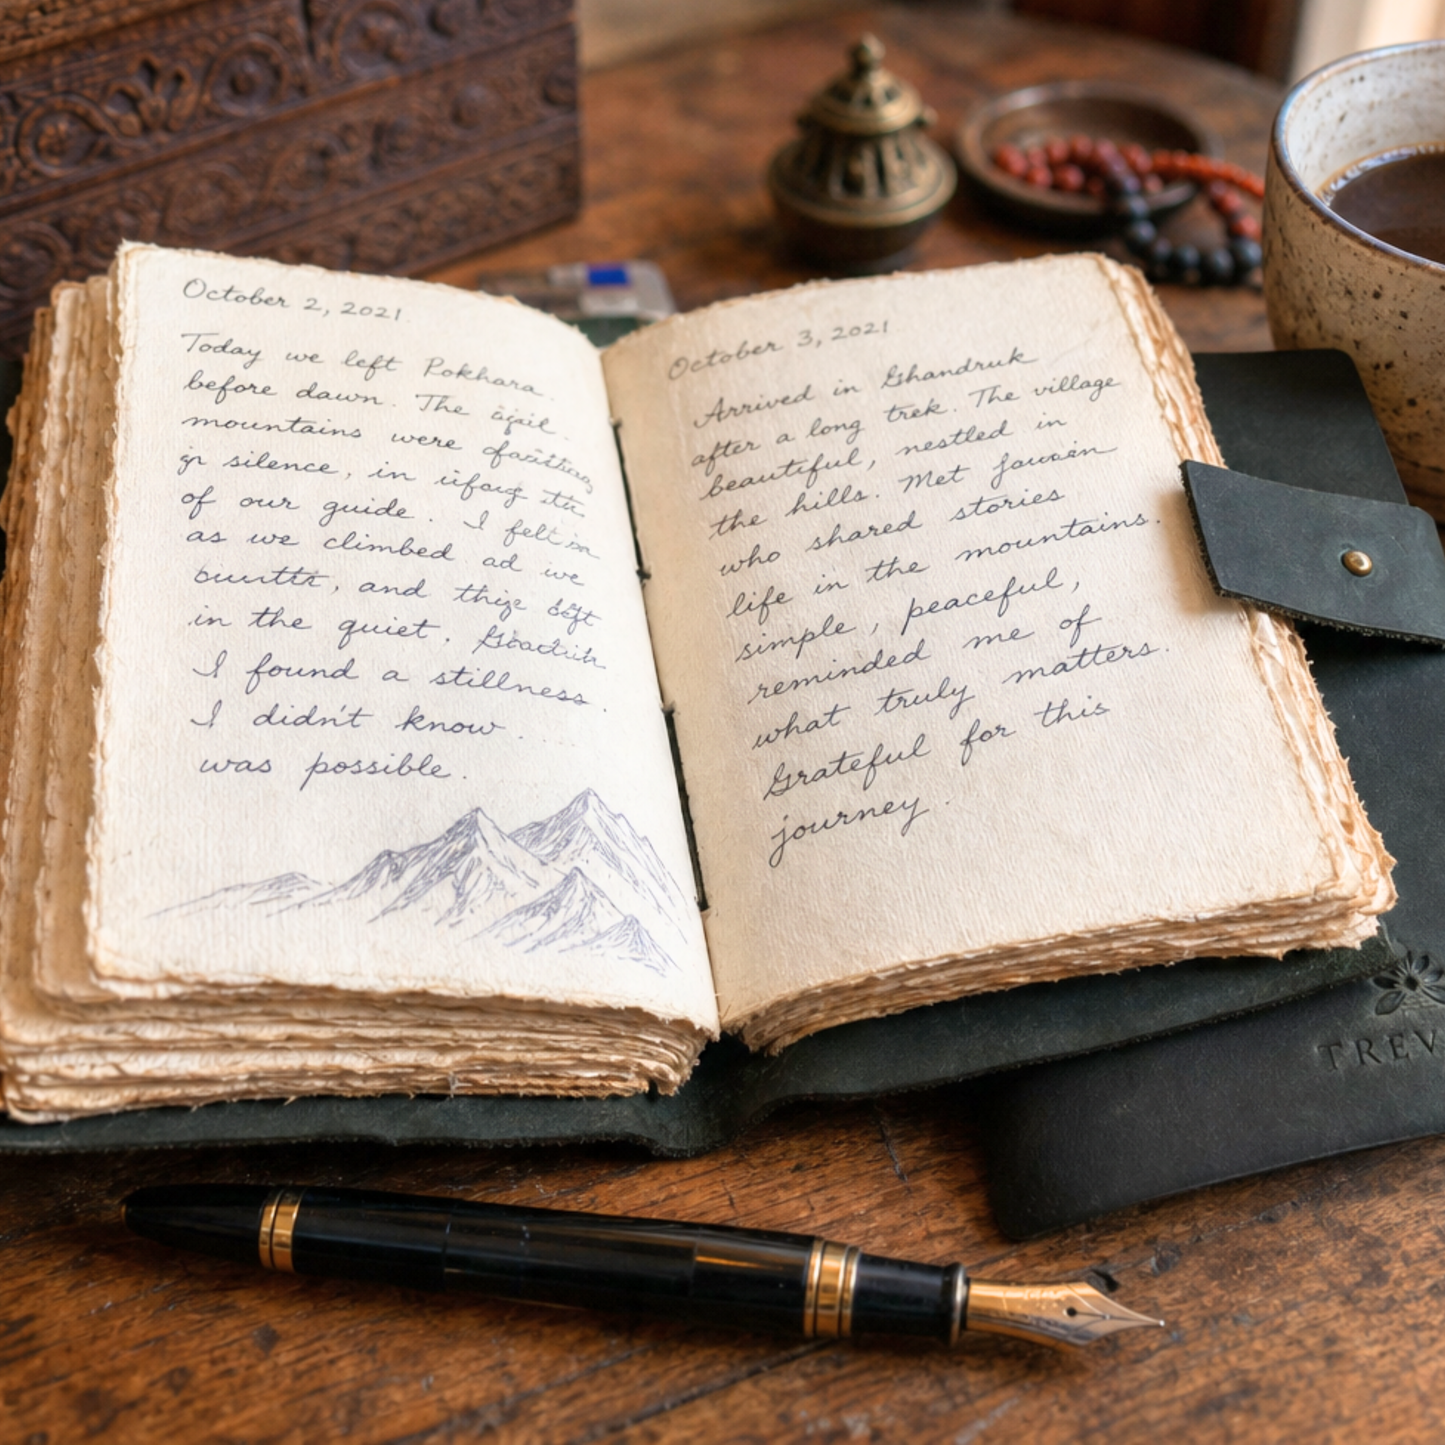 October 2, 2021
Today we left Pokhara
before dawn. The
mountains were
silence, in
of our guide. I felt
as we climbed ad we
and
in the quiet.
I found a stillness.
I didn't know
was possible.
October 3, 2021
Arrived in Ghandruk
after a long trek. The village
beautiful, nestled in
the hills. Met
who shared stories
life in the mountains.
simple, peaceful,
reminded me of
what truly matters.
Grateful for this
journey.
TREV